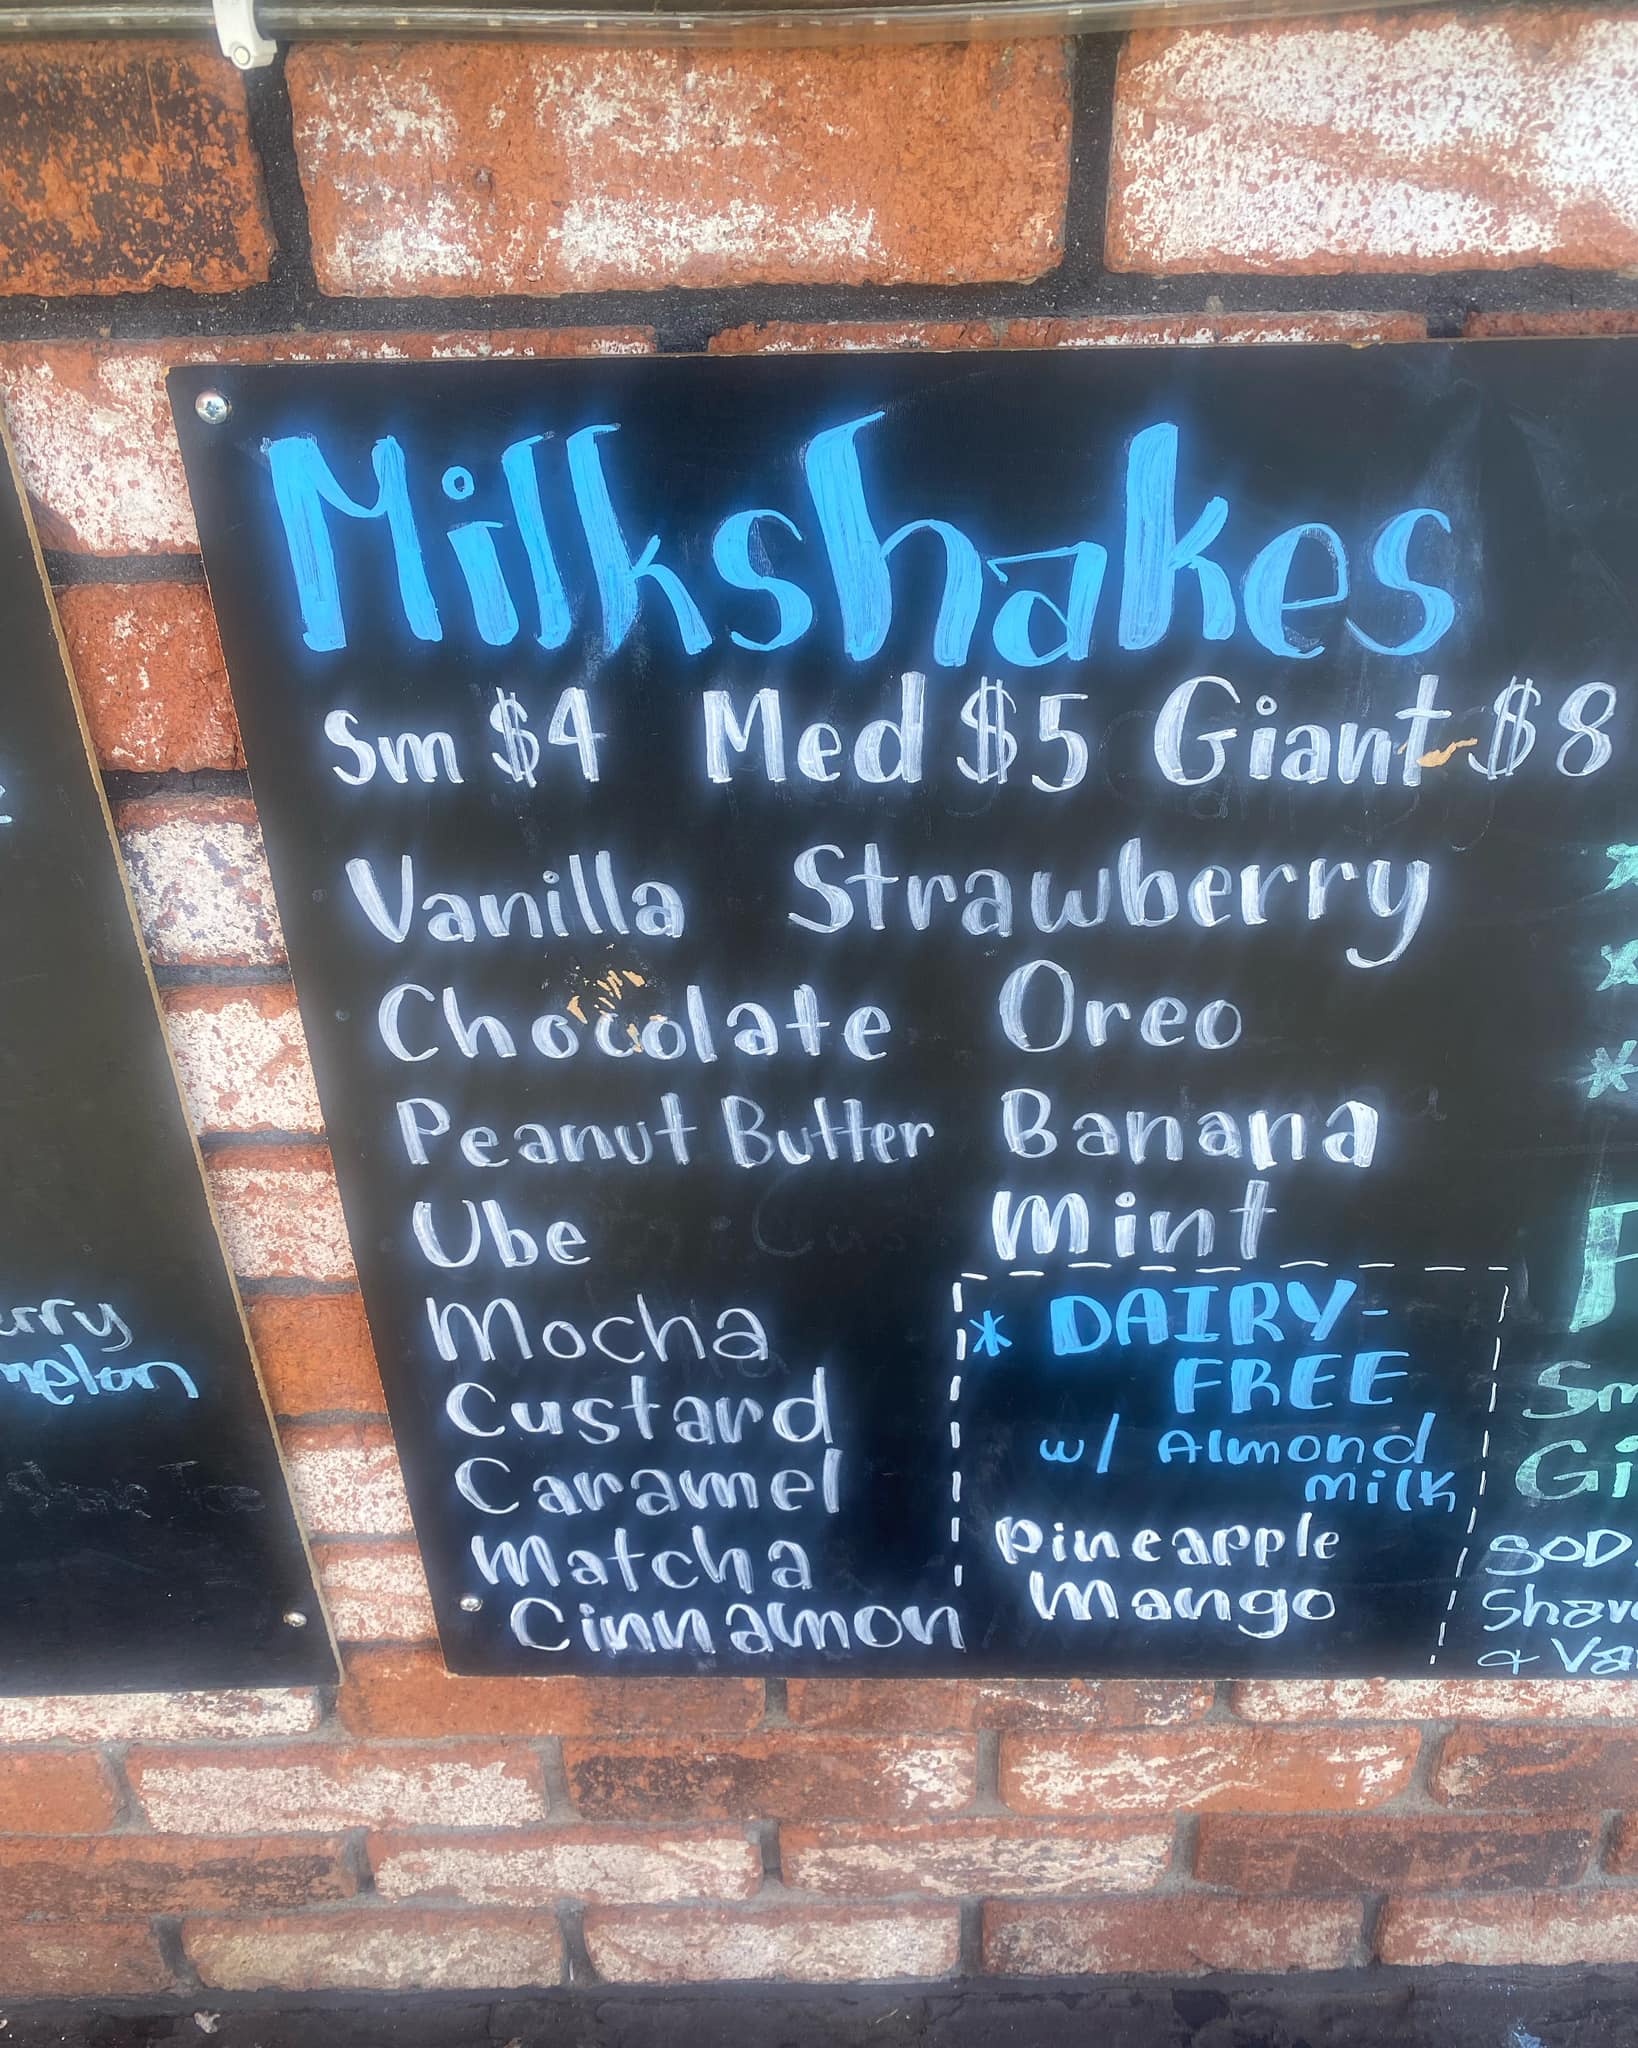 Milkshakes
Sm $4 Med $5 Giant $8
Vanilla Strawberry
Chocolate Oreo
Peanut Butter Banana
Ube Mint
Mocha
Custard
Caramel
Matcha
Cinnamon
* DAIRY-
FREE
w/ Almond
milk
Pineapple
Mango
melon
Sm
Gi
&